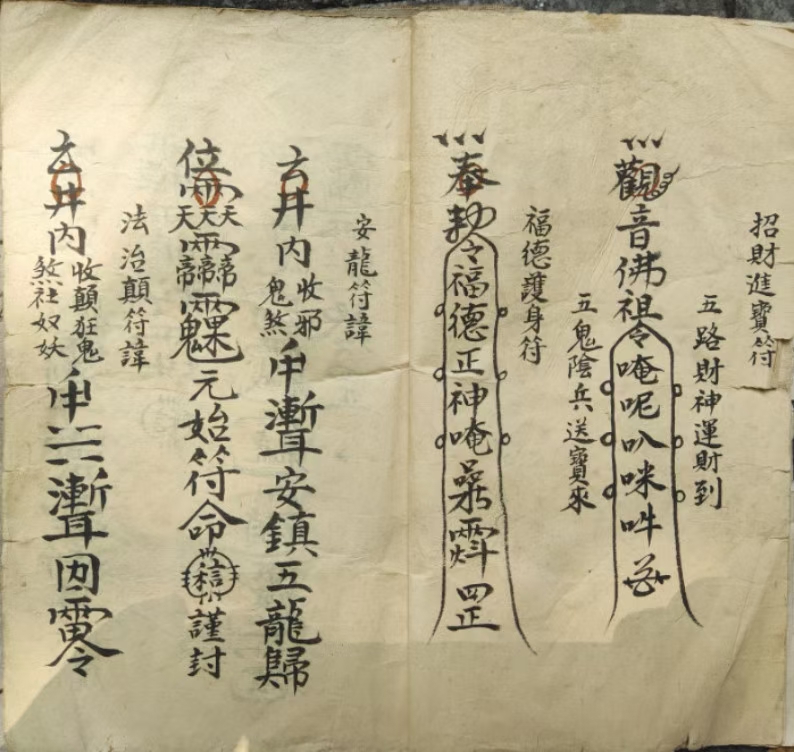 招財進寶符
五路財神運財到
觀音佛祖令唵呢叭咪吽
五鬼陰兵送寶來
福德護身符
奉勅令福德正神唵 四正
安龍符諱
井內收邪鬼煞 安鎮五龍歸
元始符命 謹封
法治顛符諱
井內收顛狂鬼煞社奴妖